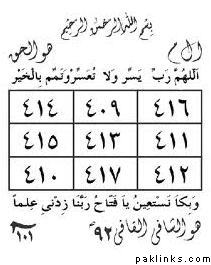 بِسْمِ اللّٰهِ الرَّحْمٰنِ الرَّحِيْمِ
ا ل م هو الحق
اَللّٰهُمَّ رَبِّ يَسِّرْ وَلَا تُعَسِّرْ وَتَمِّمْ بِالْخَيْرِ
٤١٦ ٤٠٩ ٤١٤
٤١١ ٤١٣ ٤١٥
٤١٢ ٤١٧ ٤١٠
وَبِكَا نَسْتَعِينُ يَا فَتَّاحُ رَبَّنَا زِدْنِي عِلْماً
هو الشافي القافي ٩٢ ١٠١
paklinks.com